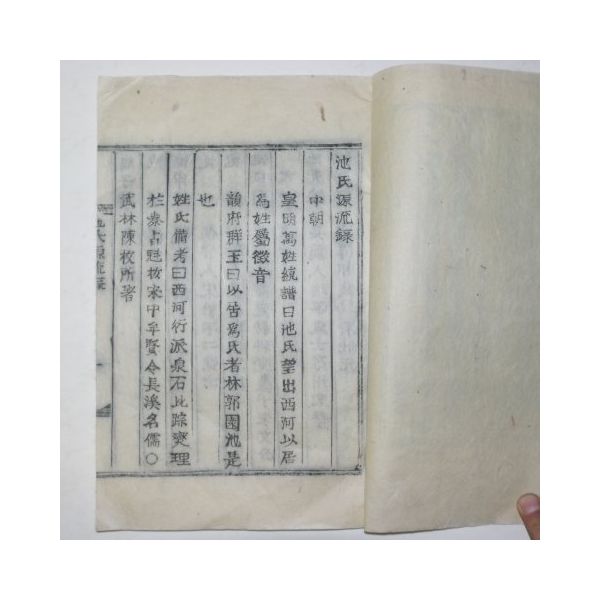 池氏源流錄
中朝
皇明萬姓統譜曰池氏望出西河以居
爲姓屬徵音
韻府群玉曰以居爲氏者林郭園池是
也
姓氏備考曰西河衍派泉石比踪燮理
於秦占魁於宋中牟賢令長溪名儒〇
武林陳枚所著
池氏源流錄